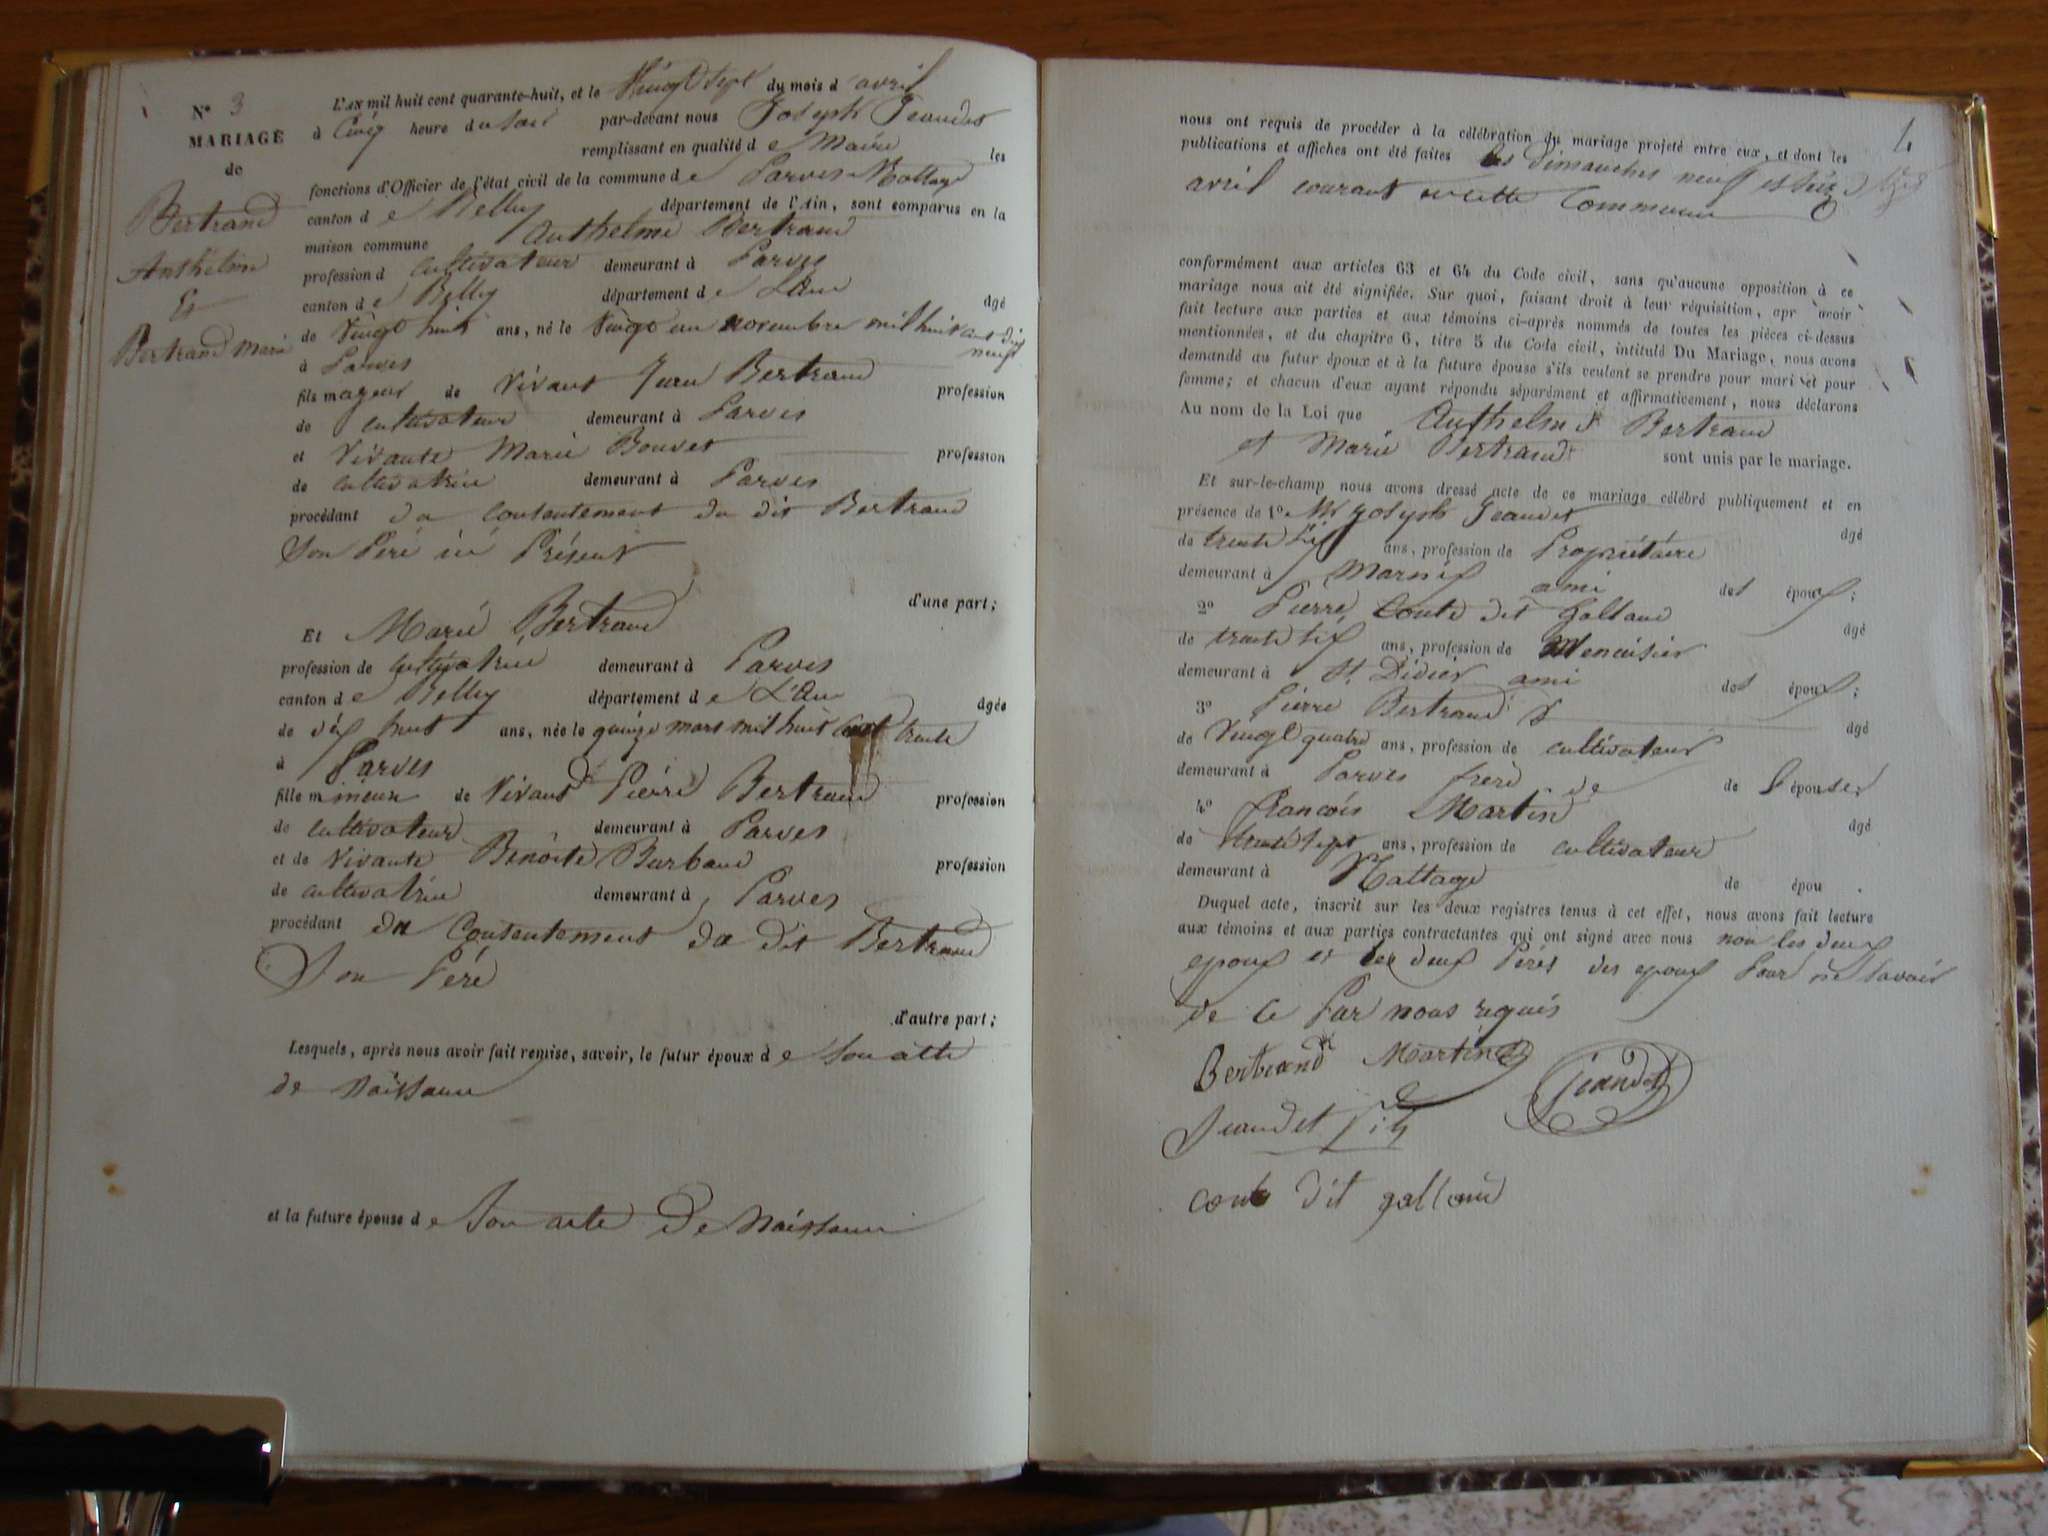 N° 3
MARIAGE
de
Bertrand
Anthelme
Et
Bertrand Marie
L'AN mil huit cent quarante-huit, et le Vingt sept du mois d'avril
à Cinq heure du soir par-devant nous Joseph Jeandet
remplissant en qualité de Maire les
fonctions d'Officier de l'état civil de la commune de Parves Nattage
canton de Belley département de l'Ain, sont comparus en la
maison commune Anthelme Bertrand
profession d cultivateur demeurant à Parves
canton de Belley département de L'Ain âgé
de Vingt huit ans, né le Vingt un novembre mil huit cent dix
neuf
à Parves
fils majeur de Vivant Jean Bertrand profession
de cultivateur demeurant à Parves
et Vivante Marie Bouvet profession
de cultivatrice demeurant à Parves
procédant du Contentement du dit Bertrand
Son Père ici Présent
d'une part;
Et Marie Bertrand
profession de cultivatrice demeurant à Parves
canton de Belley département de L'Ain âgée
de dix huit ans, née le quinze mars mil huit cent trente
à Parves
fille mineur de Vivant Pierre Bertrand profession
de cultivateur demeurant à Parves
et de Vivante Benoite Burbaud profession
de cultivatrice demeurant à Parves
procédant du Contentement du dit Bertrand
Son Père
d'autre part;
Lesquels, après nous avoir fait remise, savoir, le futur époux de Son acte
de Naissance
et la future épouse de Son acte De Naissance
4
nous ont requis de procéder à la célébration du mariage projeté entre eux, et dont les
publications et affiches ont été faites les Dimanches neuf et seize
avril courant en cette Commune
conformément aux articles 63 et 64 du Code civil, sans qu'aucune opposition à ce
mariage nous ait été signifiée. Sur quoi, faisant droit à leur réquisition, apr avoir
fait lecture aux parties et aux témoins ci-après nommés de toutes les pièces ci-dessus
mentionnées, et du chapitre 6, titre 5 du Code civil, intitulé Du Mariage, nous avons
demandé au futur époux et à la future épouse s'ils veulent se prendre pour mari et pour
femme; et chacun d'eux ayant répondu séparément et affirmativement, nous déclarons
Au nom de la Loi que Anthelme Bertrand
et Marie Bertrand sont unis par le mariage.
Et sur-le-champ nous avons dressé acte de ce mariage célébré publiquement et en
présence de 1° Mr Joseph Jeandet âgé
de trente six ans, profession de Propriétaire
demeurant à ami des époux;
2° Pierre Conte dit Galland âgé
de trente six ans, profession de Menuisier
demeurant à St Didier ami des époux;
3° Pierre Bertrand âgé
de Vingt quatre ans, profession de cultivateur
demeurant à Parves frere de de l'épouse;
4° François Martin âgé
de trente sept ans, profession de cultivateur
demeurant à Nattage de épou .
Duquel acte, inscrit sur les deux registres tenus à cet effet, nous avons fait lecture
aux témoins et aux parties contractantes qui ont signé avec nous non les deux
epoux et les deux Pères des epoux Pour ne Savoir
de ce Par nous requis
Bertrand Martin
Jeandet
Jeandet
conte dit galland